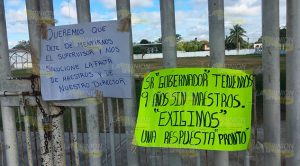 QUEREMOS QUE
DEJE DE MENTIRNOS
EL SUPERVISOR Y NOS
SOLUCIONE LA FALTA
DE MAESTROS Y DE
NUESTRO DIRECTOR
SR "GOBERNADOR" TENEMOS
9 AÑOS SIN MAESTROS.
"EXIGIMOS"
UNA RESPUESTA "PRONTO"